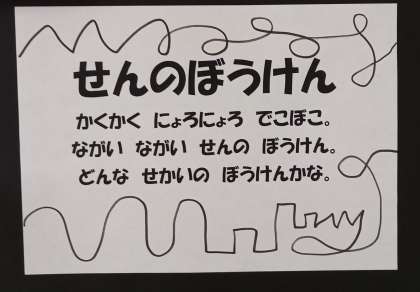 せんのぼうけん
かくかく にょろにょろ でこぼこ。
ながい ながい せんの ぼうけん。
どんな せかいの ぼうけんかな。